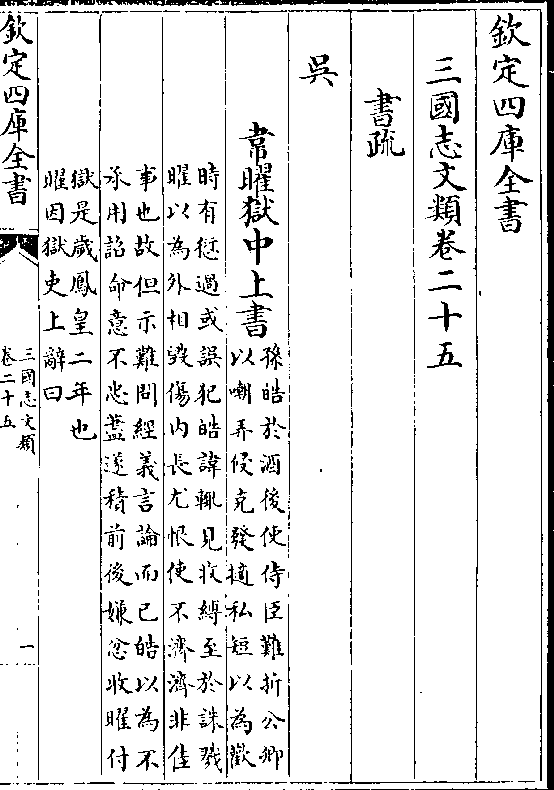 欽定四庫全書
三國志文類卷二十五
書疏
吳
韋曜獄中上書
孫皓於酒後使侍臣難折公卿
以嘲弄侵克發摘私短以為歡
時有愆過或誤犯皓諱輒見收縛至於誅戮
曜以為外相毀傷內長尤恨使不濟濟非佳
事也故但示難問經義言論而已皓以為不
承用詔命意不忠盡遂積前後嫌忿收曜付
獄是歲鳳皇二年也
曜因獄吏上辭曰
欽定四庫全書
三國志文類
卷二十五
一